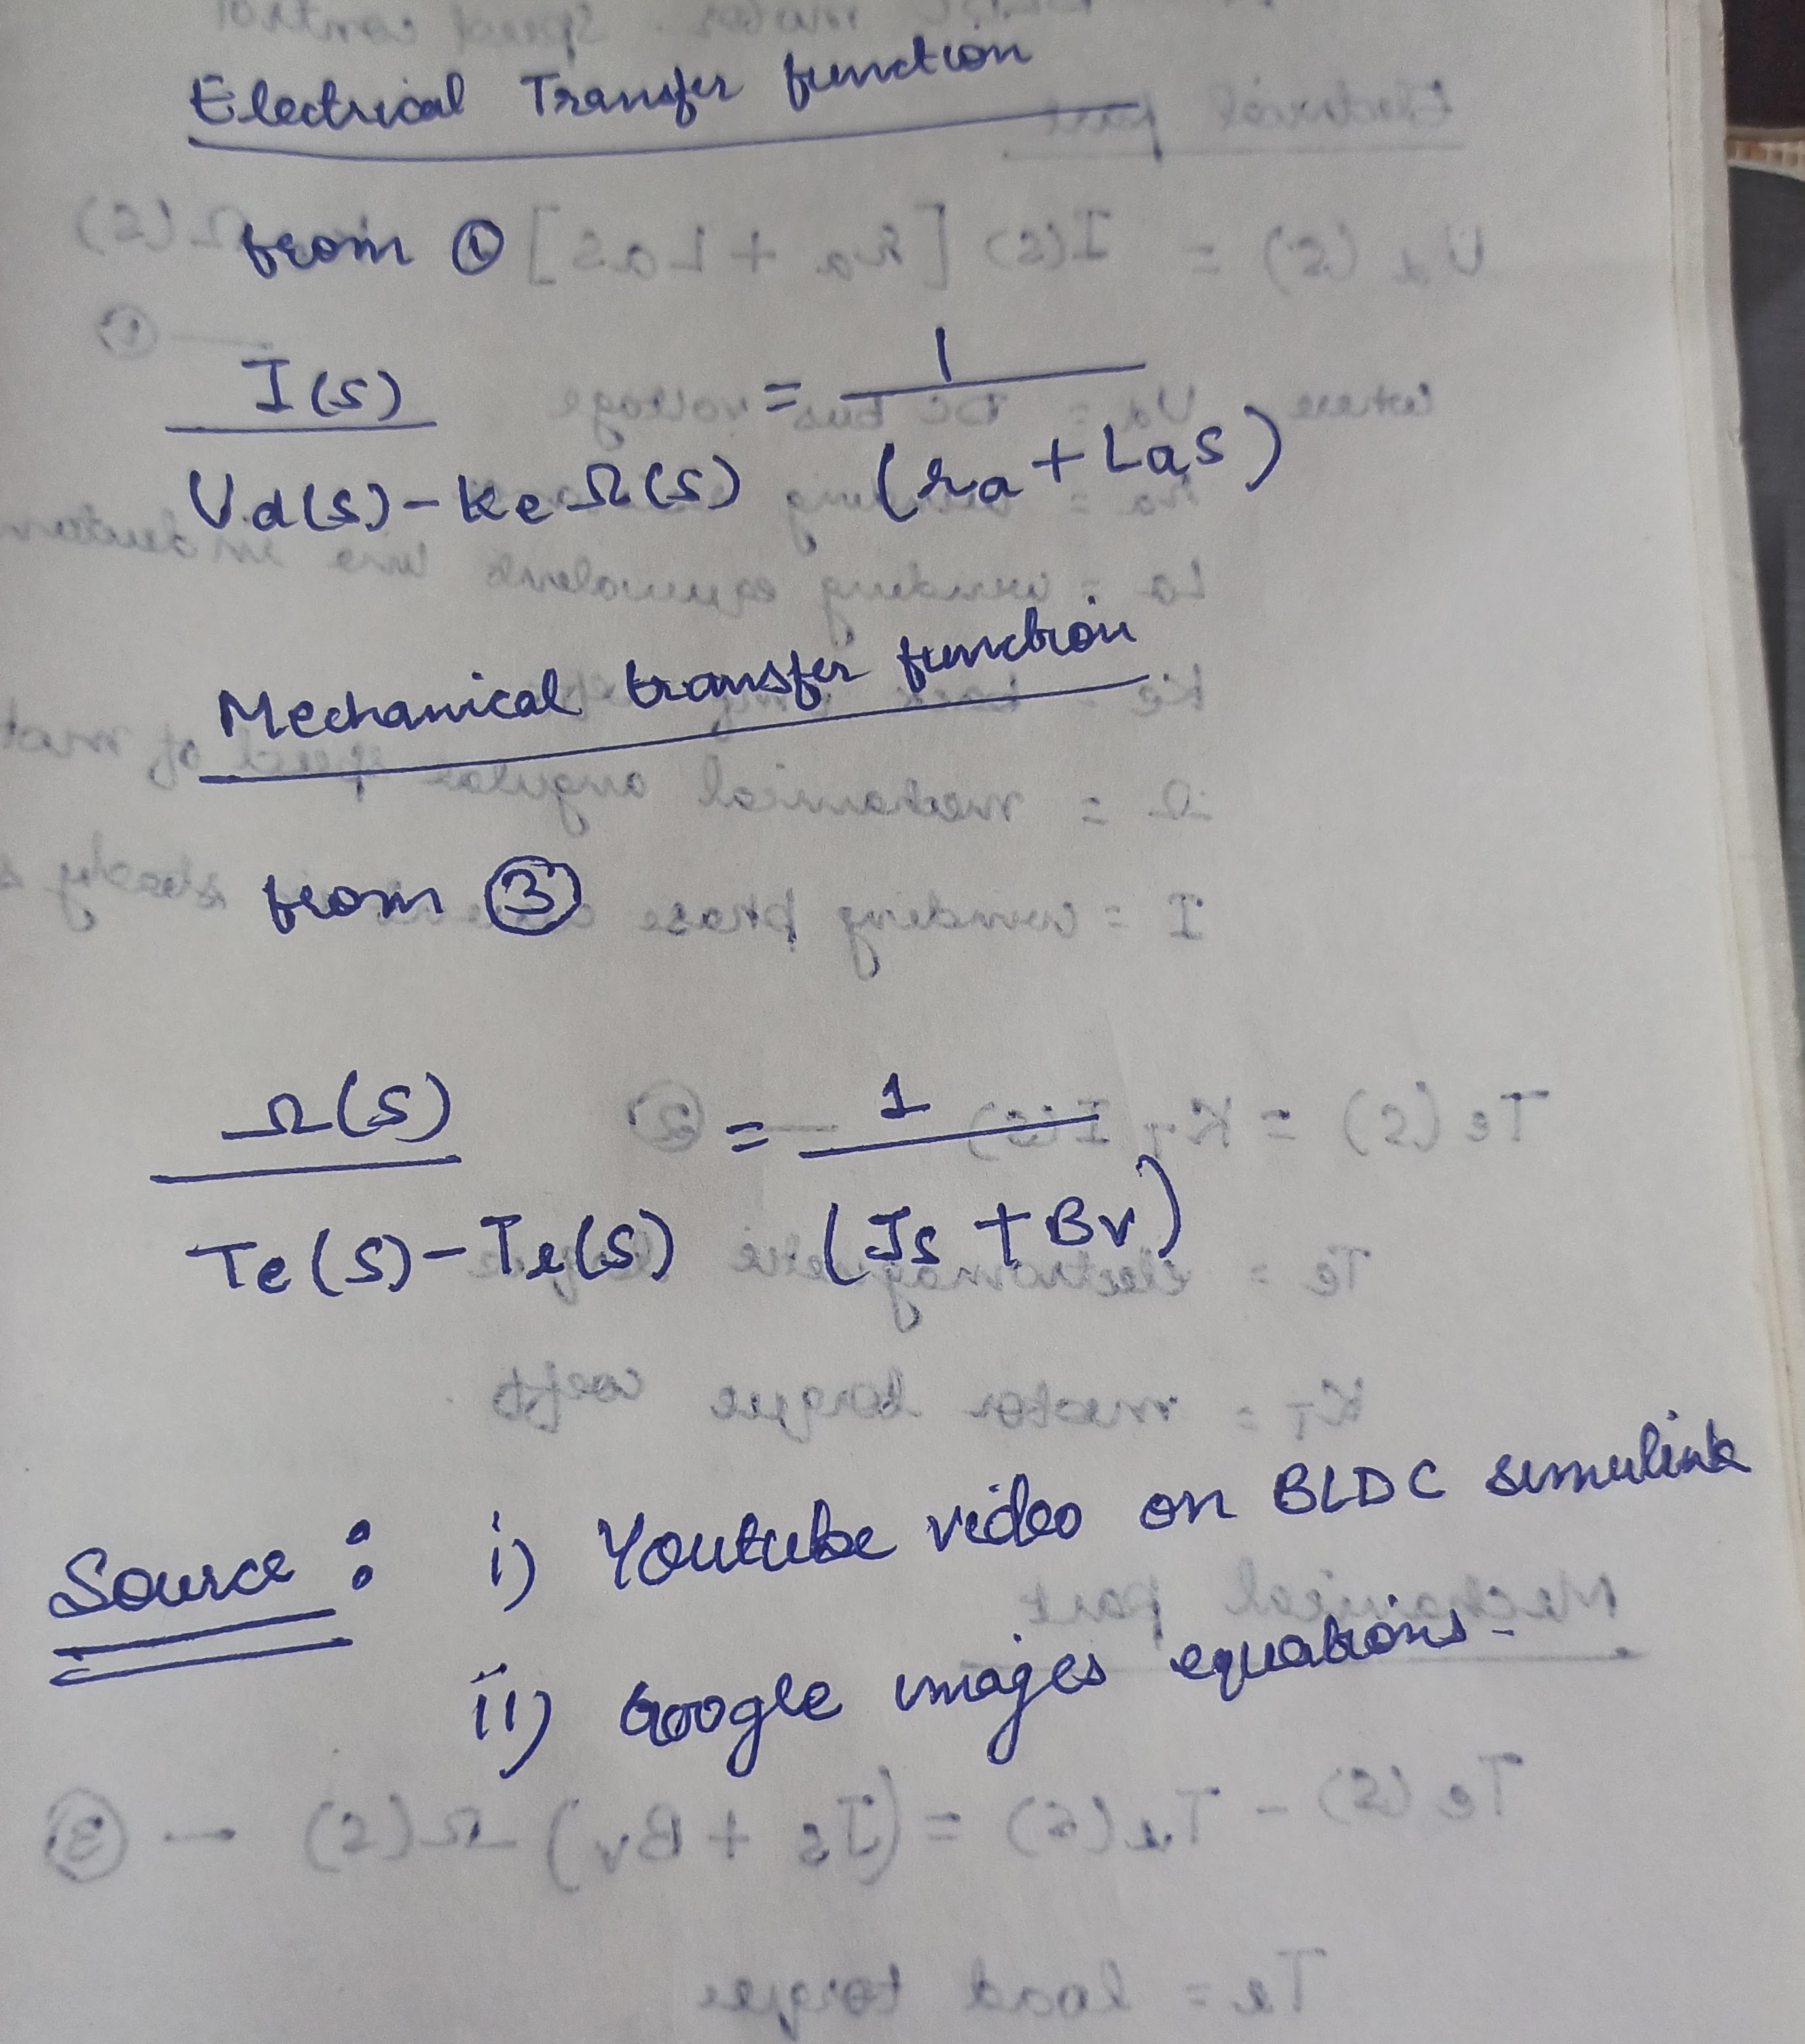 Electrical Transfer function
from ①
I(s) / Vd(s) - Ke Ω(s) = 1 / (ra + Las)
Mechanical transfer function
from ③
Ω(s) / Te(s) - Tl(s) = 1 / (Js + Bv)
Source : i) Youtube video on BLDC simulink
ii) Google images equations.